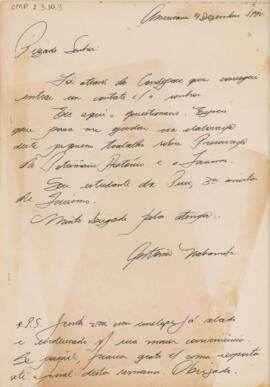 CMP 2.3.10.3
Americana 4 Dezembro 1990
Prezado Senhor
Foi através do Condepacc que consegui
entrar em contato c/ o senhor
Eis aqui o questionário. Espero
que para me ajudar na elaboração
deste pequeno trabalho sobre Preservação
do Patrimônio Histórico e o Turismo.
Sou estudante da Pucc, 3º ano
de Turismo.
Muito obrigado pela atenção..
Antonio
P.S. Junto vai um envelope já selado
e endereçado p/ sua maior conveniência
Se possível, ficaria grato c/ uma resposta
até o final desta semana. Obrigado.